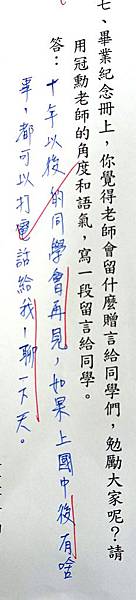 七、畢業紀念冊上，你覺得老師會留什麼贈言給同學們，勉勵大家呢？請
用冠勳老師的角度和語氣，寫一段留言給同學。
答：十年以後的同學會再見，如果上國中後有啥
事，都可以打電話給我，聊一下天。